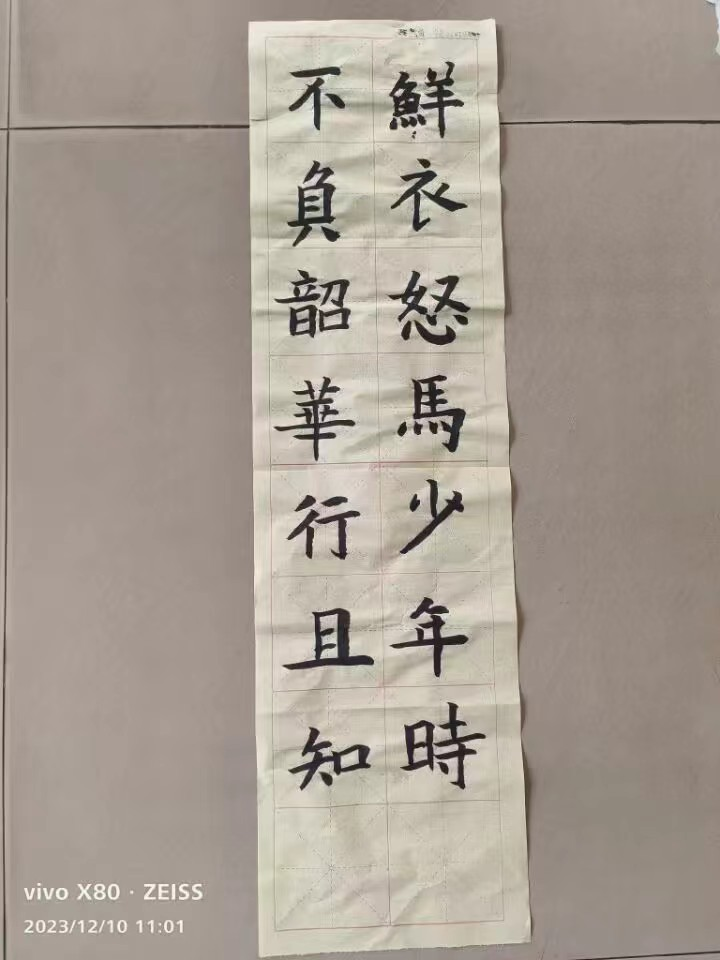 鮮衣怒馬少年時
不負韶華行且知
vivo X80 · ZEISS
2023/12/10 11:01